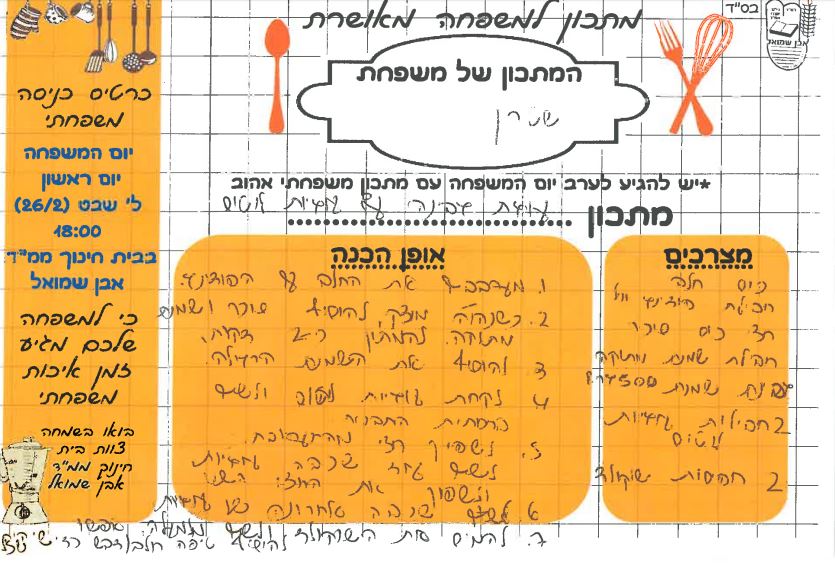 בס"ד
אבן שמואל
מתכון למשפחה מאושרת
המתכון של משפחת
*יש להגיע לערב יום המשפחה עם מתכון משפחתי אהוב
מתכון עוגת גבינה עם עוגיות לוטוס
כרטיס כניסה
משפחתי
יום המשפחה
יום ראשון
ל' שבט (26/2)
18:00
בבית חינוך ממ"ד
אבן שמואל
כי למשפחה
שלכם מגיע
זמן איכות
משפחתי
בואו בשמחה
צוות בית
חינוך ממ"ד
אבן שמואל
מצרכים
כוס חלב
חבילת פודינג וניל
חצי כוס סוכר
חבילת שמנת מתוקה
שמנת
2 חבילות עוגיות
לוטוס
2 חפיסות שוקולד
אופן הכנה
1. מערבבים את החלב עם הפודינג.
2. כשנהיה מוצק, להוסיף סוכר ושמנת
מתוקה. להמתין כ-2 דקות.
3. להוסיף את השמנת הרגילה.
4. לקחת עוגיות לוטוס ולשים
בתחתית התבנית
5. לשפוך חצי מהתערובת.
לשים עוד שכבה עוגיות
ולשפוך את החצי השני
6. לשים שכבה אחרונה של עוגיות
7. להמיס את השוקולד ולשים למעלה. אפשר
להוסיף טיפה חלב